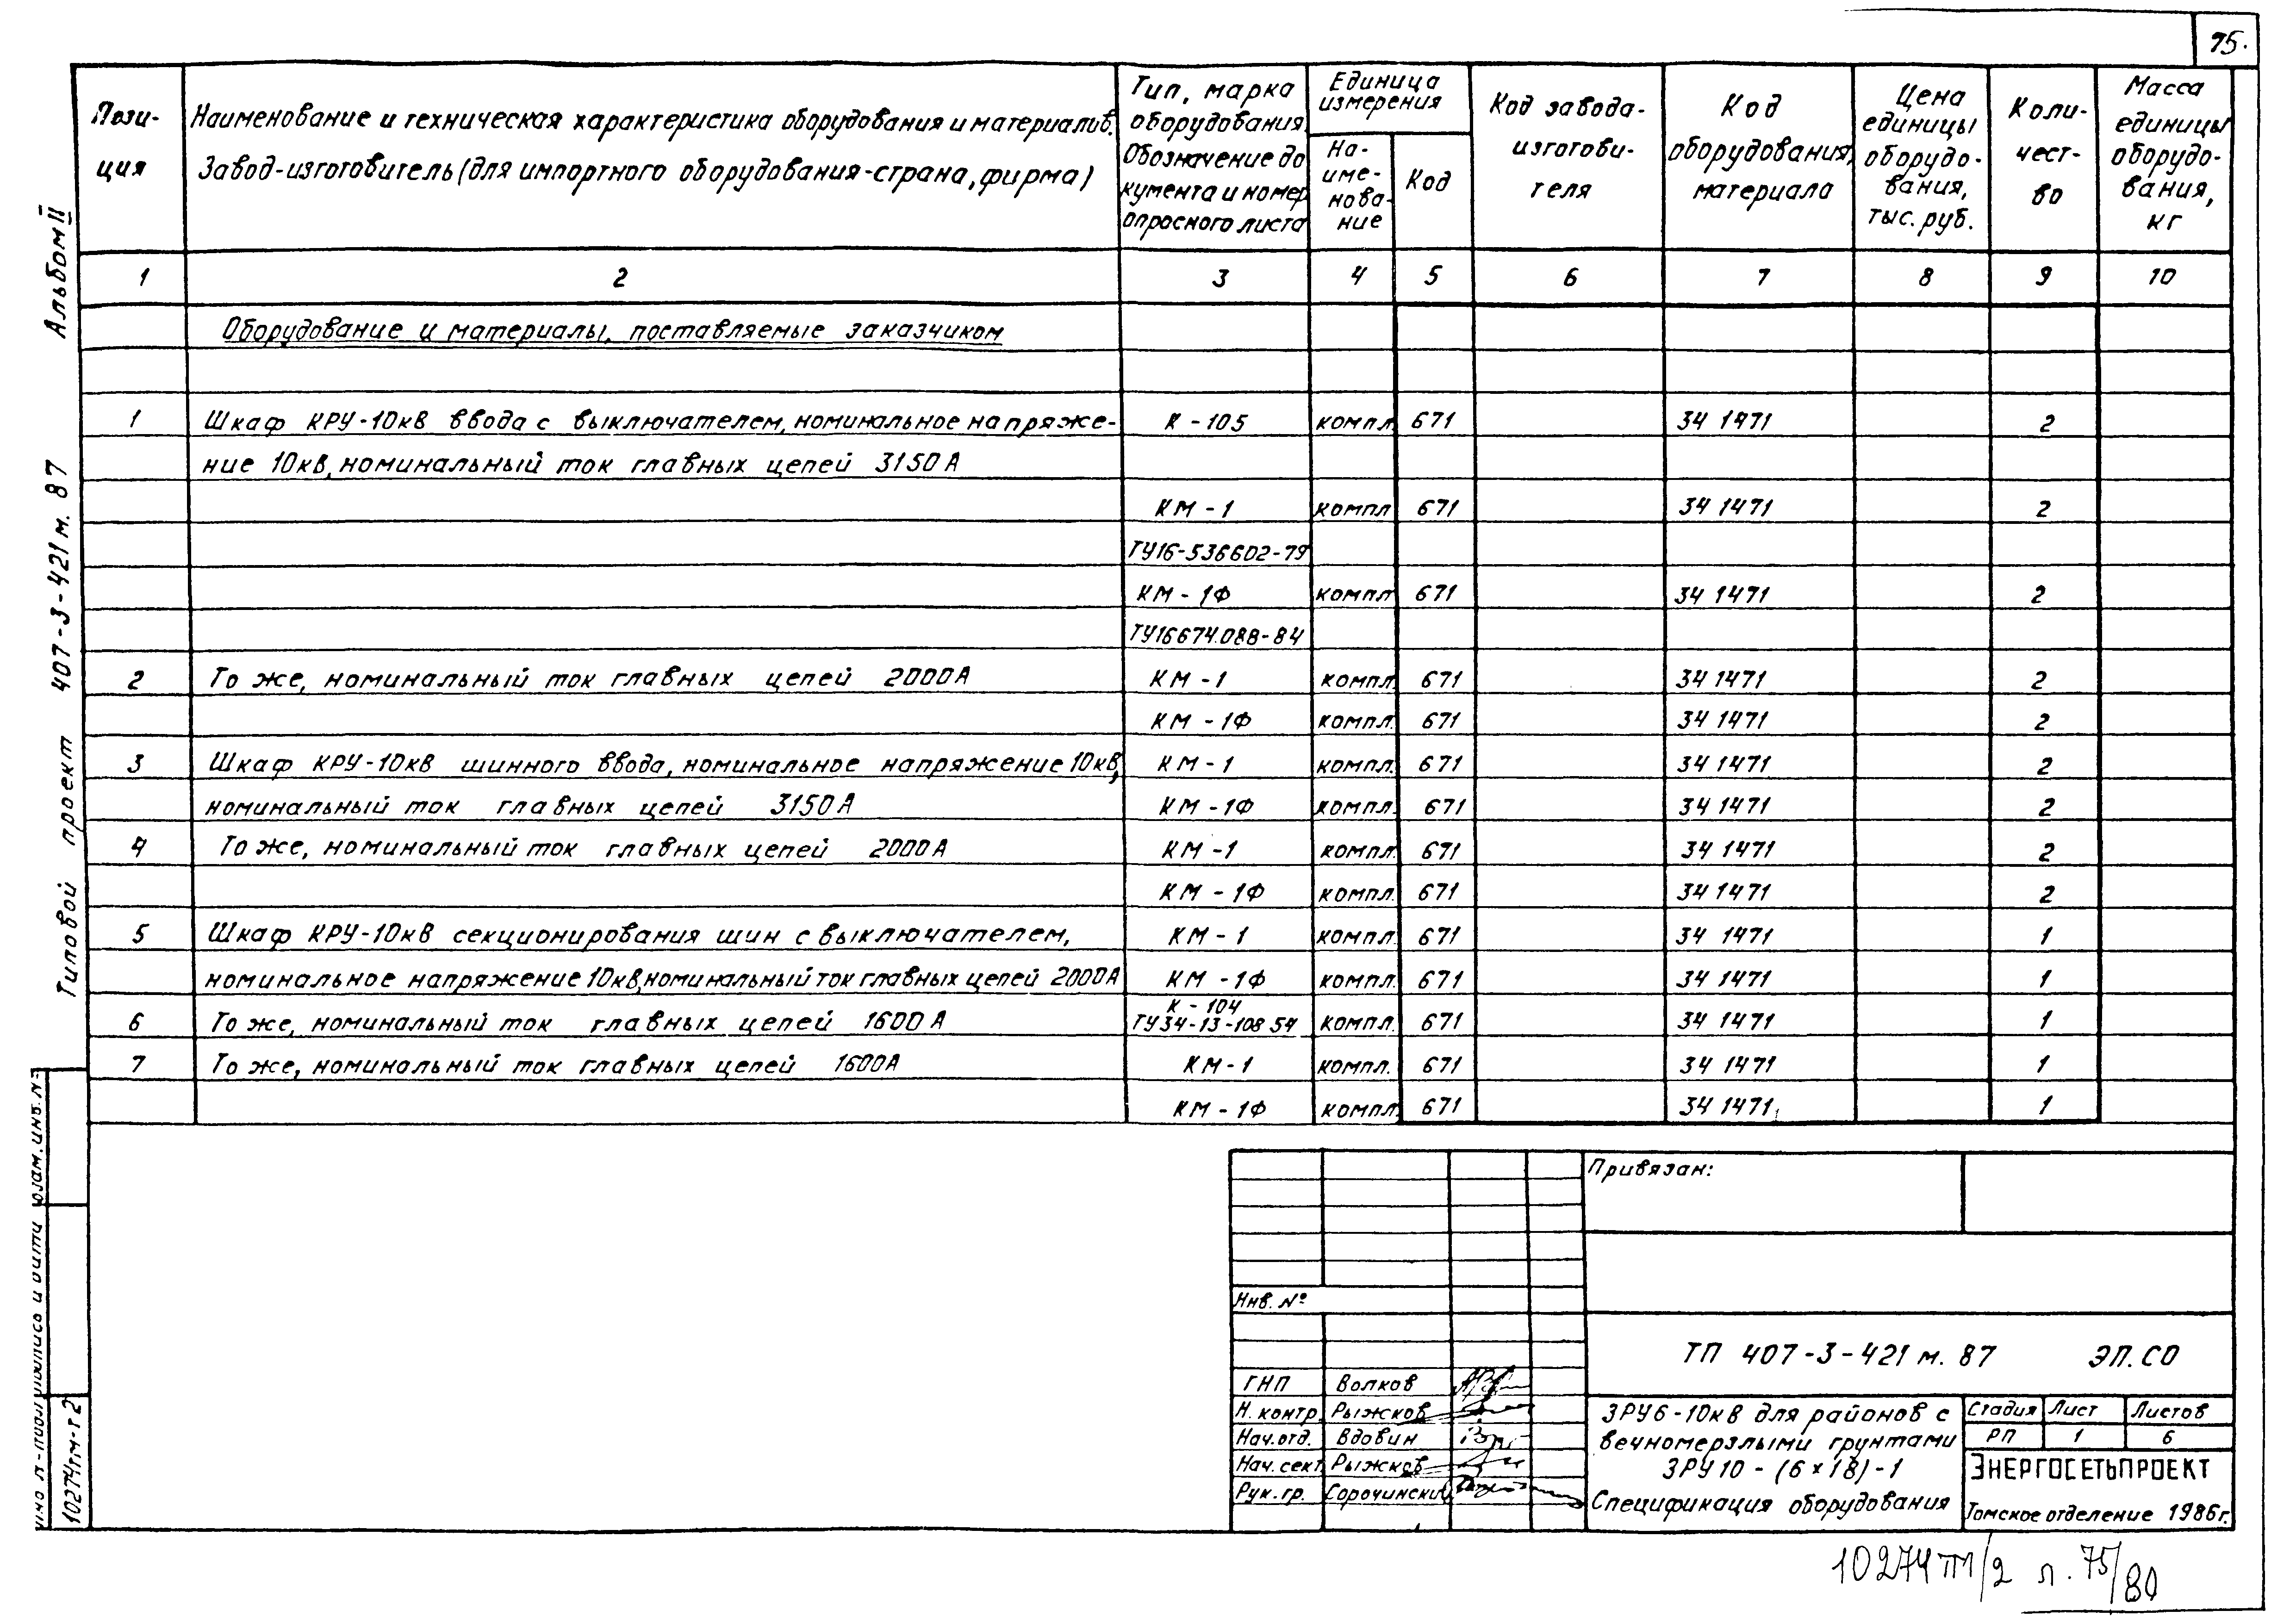 75.
Пози-
ция
Наименование и техническая характеристика оборудования и материалов.
Завод-изготовитель (для импортного оборудования-страна, фирма)
Тип, марка
оборудования.
Обозначение до
кумента и номер
опросного листа
Единица
измерения
На-
име-
нова-
ние
Код
Код завода-
изготови-
теля
Код
оборудования,
материала
Цена
единицы
оборудо-
вания,
тыс. руб.
Коли-
чест-
во
Масса
единицы
оборудо-
вания,
кг
1 2 3 4 5 6 7 8 9 10
Оборудование и материалы, поставляемые заказчиком
1 Шкаф КРУ-10кВ ввода с выключателем, номинальное напряже- К-105 компл. 671 34 1471 2
ние 10кВ, номинальный ток главных цепей 3150А
КМ-1 компл 671 34 1471 2
ТУ16-536602-79
КМ-1Ф компл 671 34 1471 2
ТУ16674.088-84
2 То же, номинальный ток главных цепей 2000А КМ-1 компл. 671 34 1471 2
КМ-1Ф компл. 671 34 1471 2
3 Шкаф КРУ-10кВ шинного ввода, номинальное напряжение 10кВ, КМ-1 компл. 671 34 1471 2
номинальный ток главных цепей 3150А КМ-1Ф компл. 671 34 1471 2
4 То же, номинальный ток главных цепей 2000А КМ-1 компл. 671 34 1471 2
КМ-1Ф компл. 671 34 1471 2
5 Шкаф КРУ-10кВ секционирования шин с выключателем, КМ-1 компл. 671 34 1471 1
номинальное напряжение 10кВ, номинальный ток главных цепей 2000А КМ-1Ф компл. 671 34 1471 1
К-104
6 То же, номинальный ток главных цепей 1600А ТУ34-13-108 54 компл. 671 34 1471 1
7 То же, номинальный ток главных цепей 1600А КМ-1 компл. 671 34 1471 1
КМ-1Ф компл. 671 34 1471 1
Альбом II
Типовой проект 407-3-421м. 87
Взам. инв. №
Подпись и дата
10274тм-т2
Привязан:
Инв. №
ТП 407-3-421м. 87 ЭП.СО
ГИП Волков
Н. контр. Рыжков
Нач. отд. Вдовин
Нач. сект. Рыжков
Рук. гр. Сорочинский
ЗРУ6-10кВ для районов с
вечномерзлыми грунтами
ЗРУ10-(6×18)-1
Спецификация оборудования
Стадия Лист Листов
РП 1 6
ЭНЕРГОСЕТЬПРОЕКТ
Томское отделение 1986г.
10274тм/2 л. 75/80